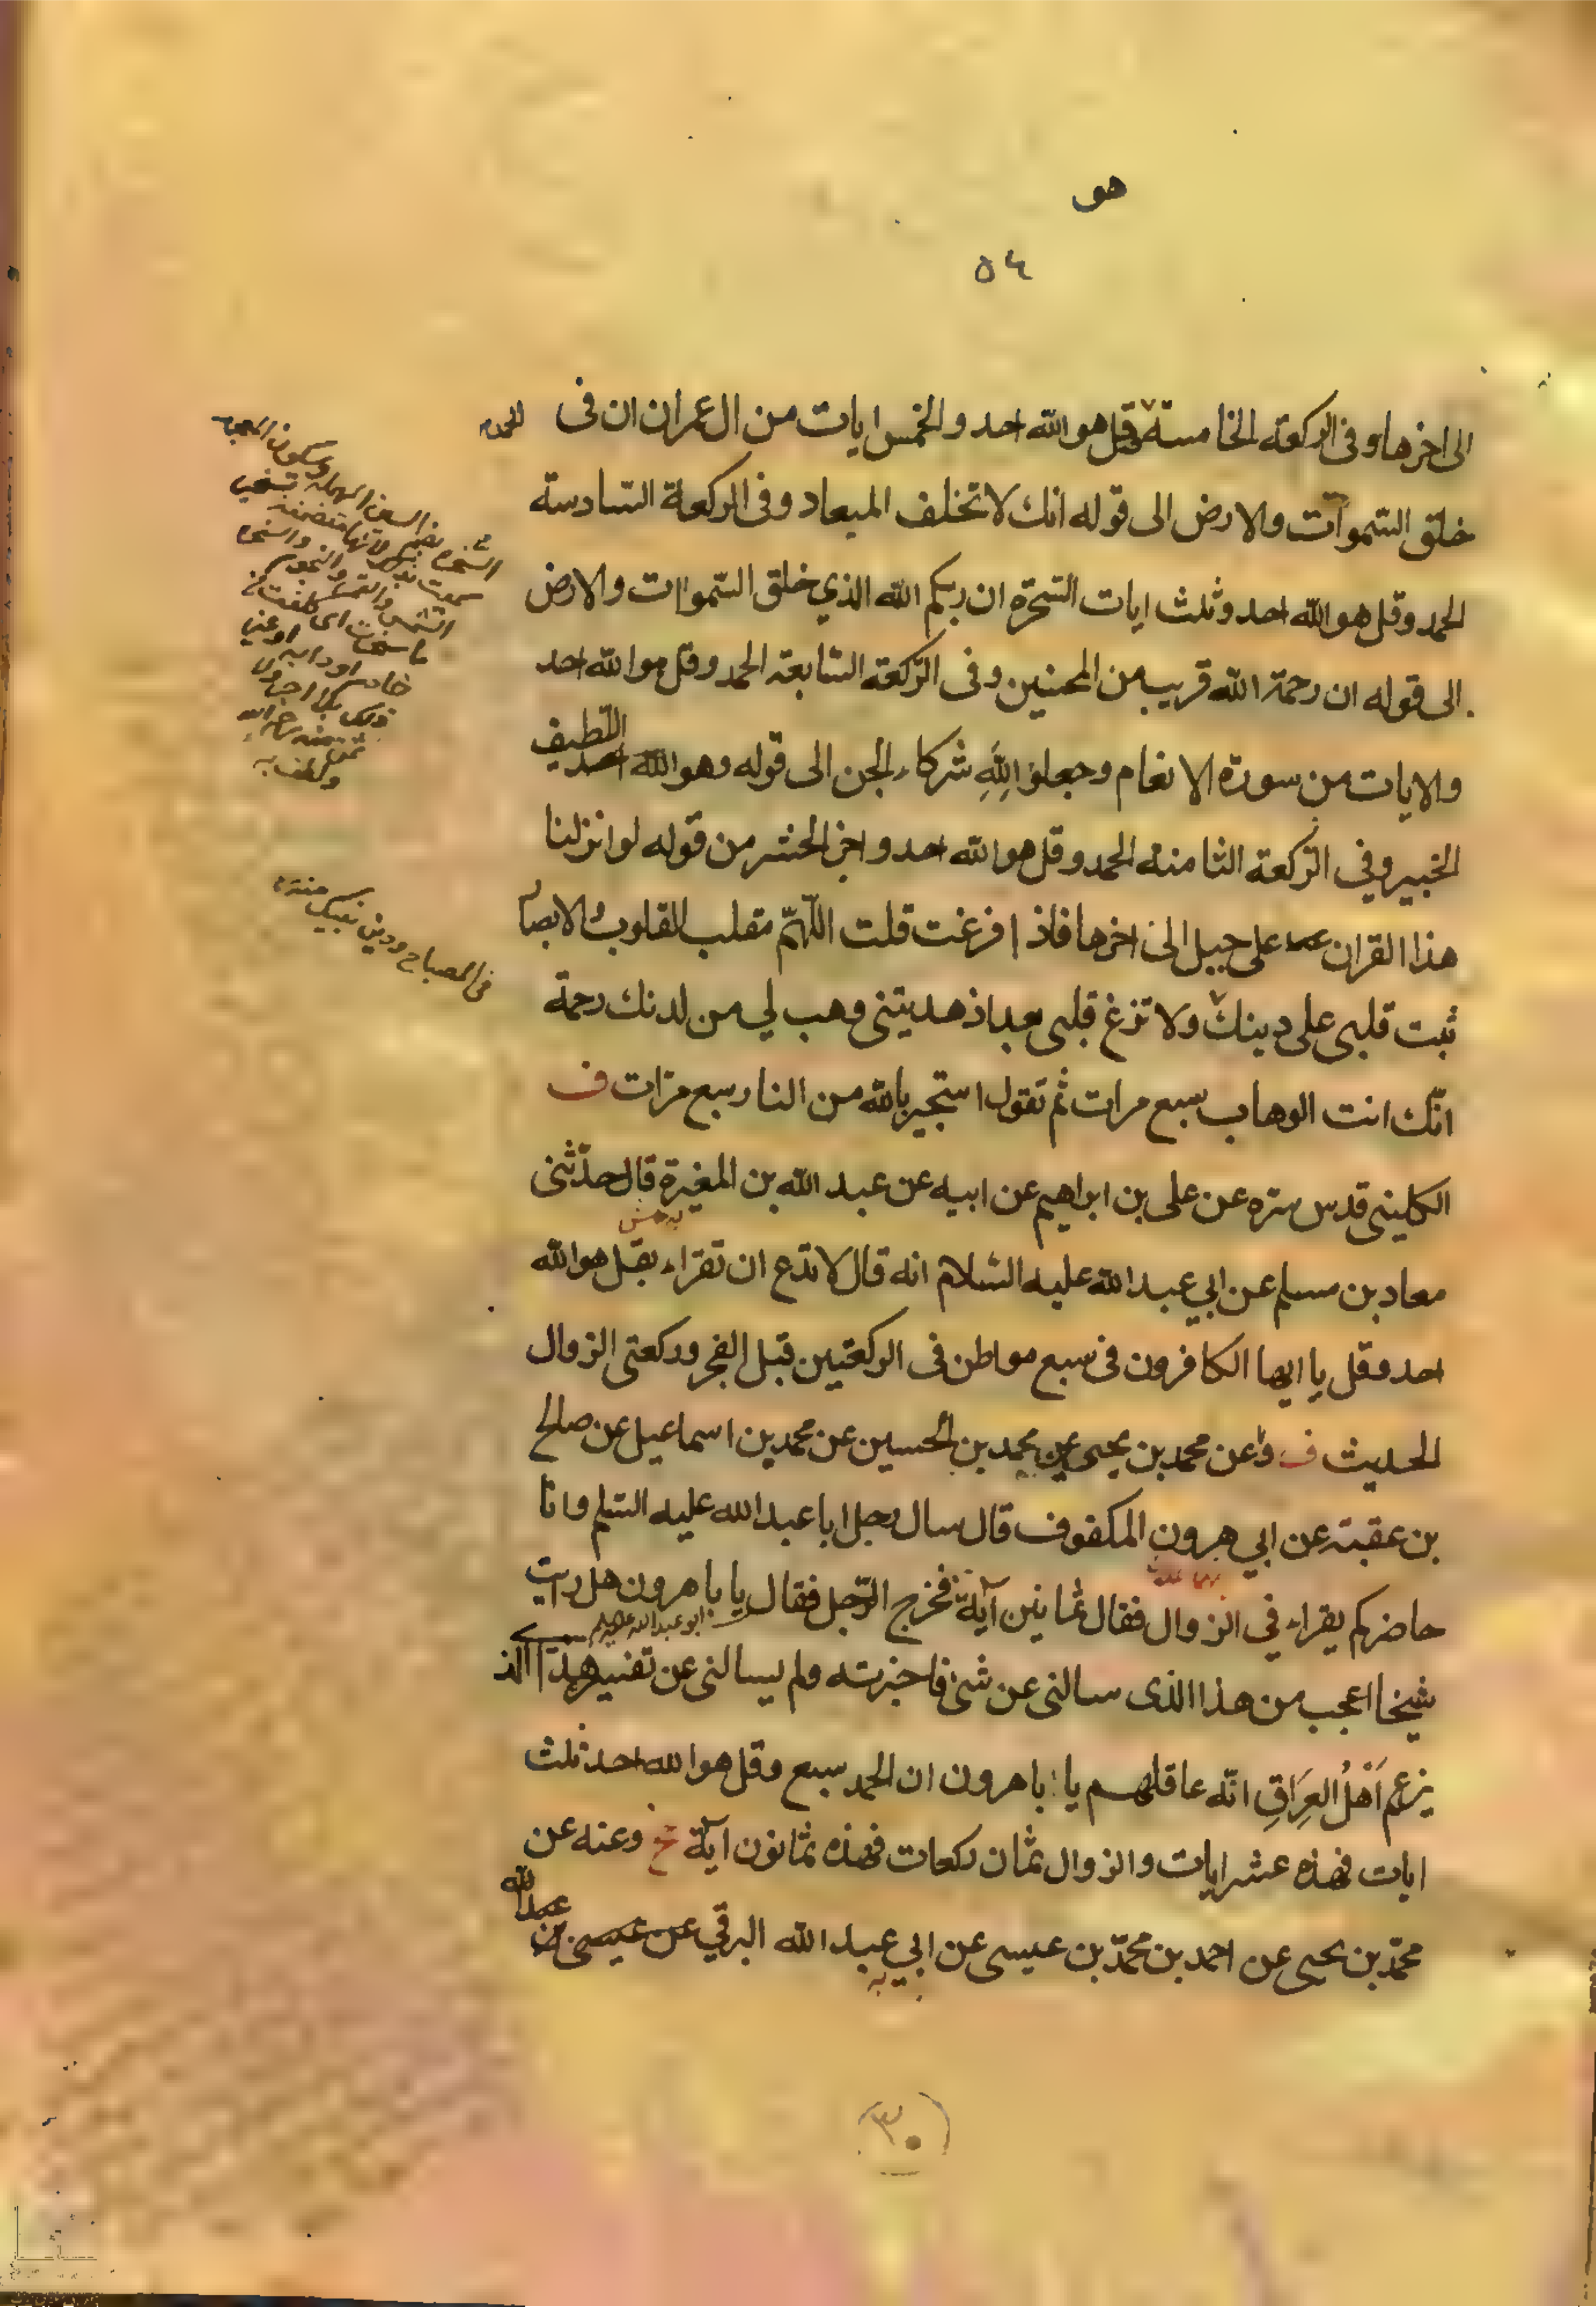 هو
٥٤
الى اخرها وفى الركعة الخامسة وقل هو الله احد والخمس ايات من ال عمران ان فى
الحمد
خلق السموات والارض الى قوله انك لا تخلف الميعاد وفى الركعة السادسة
الحمد وقل هو الله احد وثلث ايات السخرة ان ربكم الله الذي خلق السموات والارض
الى قوله ان رحمة الله قريب من المحسنين وفى الركعة السابعة الحمد وقل هو الله احد
والايات من سورة الانعام وجعلوا لله شركاء الجن الى قوله وهو اللطيف
الخبير وفي الركعة الثامنة الحمد وقل هو الله احد واخر الحشر من قوله لو انزلنا
هذا القران على جبل الى اخرها فاذا فرغت قلت اللهم مقلب القلوب والابصار
ثبت قلبى على دينك ولا تزغ قلبى بعد اذ هديتنى وهب لي من لدنك رحمة
انك انت الوهاب سبع مرات ثم تقول استجير بالله من النار سبع مرات ف
الكلينى قدس سره عن على بن ابراهيم عن ابيه عن عبد الله بن المغيرة قال حدثنى
معاد بن مسلم عن ابي عبد الله عليه السلام انه قال لا تدع ان تقراء بقل هو الله
احد وقل يا ايها الكافرون فى سبع مواطن فى الركعتين قبل الفجر وركعتى الزوال
الحديث ف وعن محمد بن يحيى عن محمد بن الحسين عن محمد بن اسماعيل عن صالح
بن عقبة عن ابي هرون المكفوف قال سال رجل ابا عبد الله عليه السلم وانا
حاضر كم يقراء في الزوال فقال ثمانين آية فخرج الرجل فقال يا با هرون هل رايت
ابو عبد الله عليه
شيخا اعجب من هذا الذى سالنى عن شئ فاخبرته ولم يسالنى عن تفسيره هذا الذ
يزعم اَهْلُ العِرَاقِ انّه عاقلهم يا با هرون ان الحمد سبع وقل هو الله احد ثلث
ايات فهذه عشر ايات والزوال ثمان ركعات فهذه ثمانون آية خ وعنه عن
محمّد بن يحيى عن احمد بن محمّد بن عيسى عن ابي عبد الله البرقي عن عيسى بن عبد الله
السخرة بضم السين المهملة وسكون المعجمة
فى المصباح ودين نبيك منه
(٣٠)